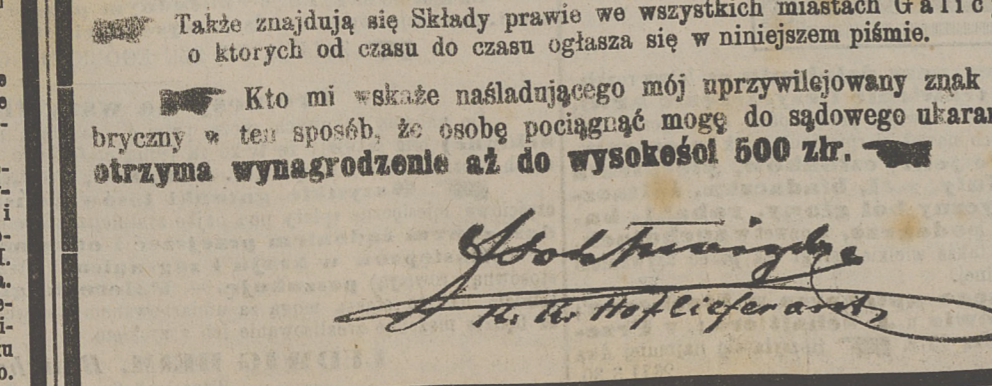 Także znajdują się Składy prawie we wszystkich miastach Galic
o ktorych od czasu do czasu ogłasza się w niniejszem piśmie.
Kto mi wskaże naśladującego mój uprzywilejowany znak
bryczny w ten sposób, że osobę pociągnąć mogę do sądowego ukaran
otrzyma wynagrodzenie aż do wysokości 500 złr.
k. k. Hoflieferant,